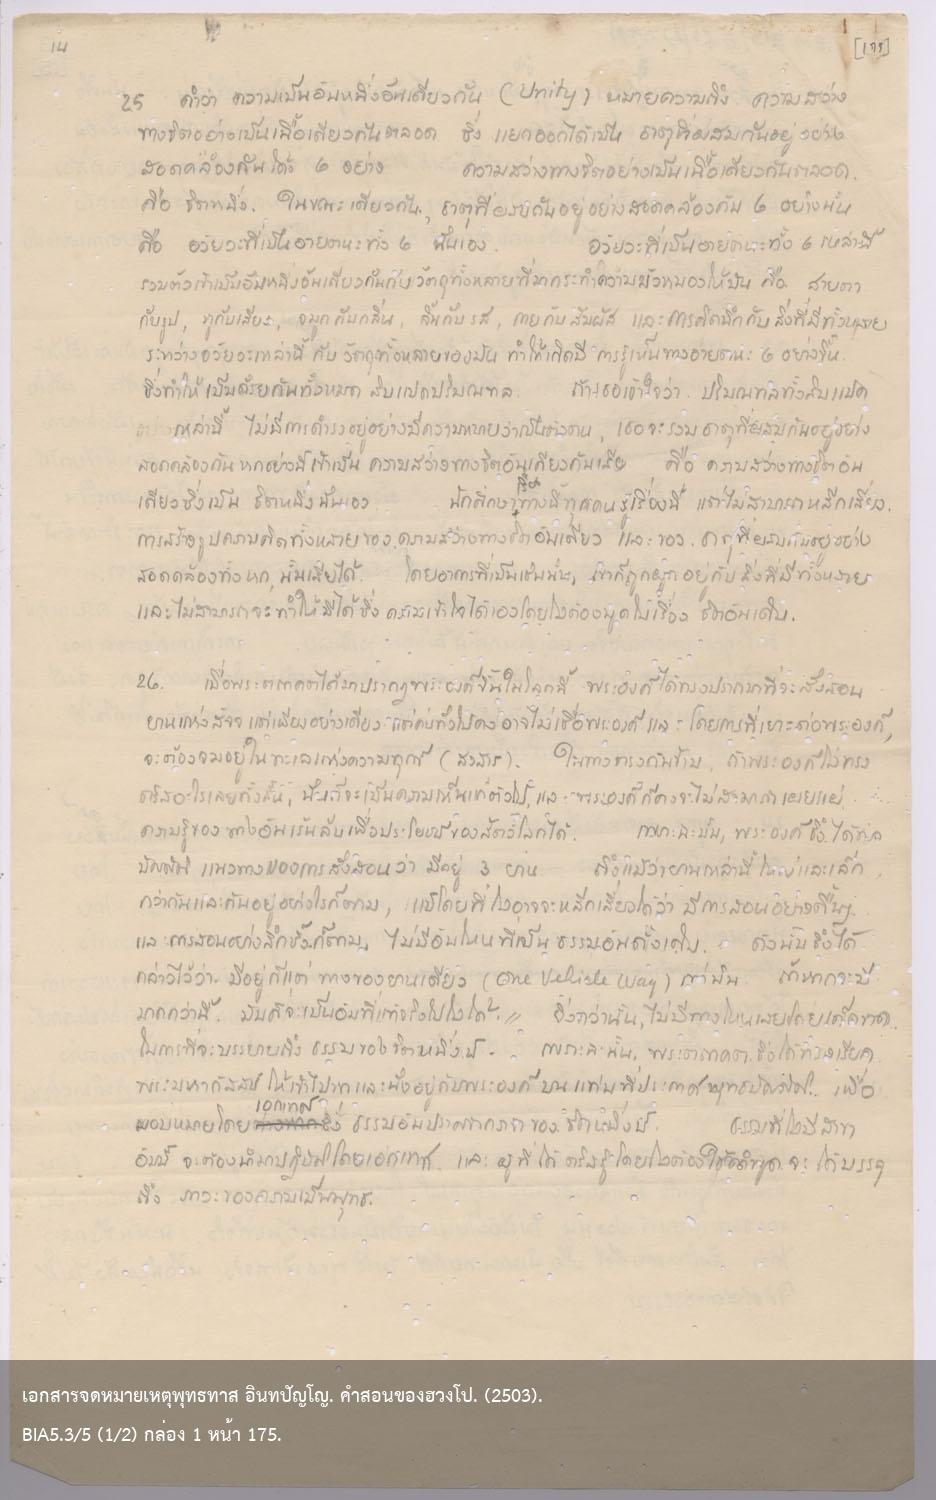 14
[175]
25 คำว่า ความเป็นอันหนึ่งอันเดียวกัน (Unity) หมายความถึง ความสว่าง
ทางจิตอย่างเป็นเนื้อเดียวกันตลอด ซึ่ง แยกออกได้เป็น ธาตุที่ผสมกันอยู่อย่าง
สอดคล้องกันได้ ๖ อย่าง ความสว่างทางจิตอย่างเป็นเนื้อเดียวกันตลอด.
คือ จิตหนึ่ง. ในขณะเดียวกัน, ธาตุที่ผสมกันอยู่อย่างสอดคล้องกัน ๖ อย่างนั้น
คือ อวัยวะที่เป็นอายตนะทั้ง ๖ นั่นเอง. อวัยวะที่เป็นอายตนะทั้ง ๖ เหล่านี้
รวมตัวเข้าเป็นอันหนึ่งอันเดียวกันกับวัตถุทั้งหลายที่มากระทำความมัวหมองให้มัน คือ สายตา
กับรูป, หูกับเสียง, จมูกกับกลิ่น, ลิ้นกับรส, กายกับสัมผัส และการคิดนึกกับสิ่งที่มีทั้งหลาย
ระหว่างอวัยวะเหล่านี้ กับ วัตถุทั้งหลายของมัน ทำให้เกิดมี การรู้เห็นทางอายตนะ ๖ อย่างขึ้น
ซึ่งทำให้เป็นด้วยกันทั้งหมด สิบแปดปริมณฑล. ถ้าเธอเข้าใจว่า ปริมณฑลทั้งสิบแปด
อย่างเหล่านี้ ไม่มีการดำรงอยู่อย่างมีความหมายว่าเป็นตัวตน, เธอจะรวม ธาตุที่ผสมกันอยู่อย่าง
สอดคล้องกันหกอย่างนี้ เข้าเป็น ความสว่างทางจิตอันเดียวกันเสีย คือ ความสว่างทางจิตอัน
เดียวซึ่งเป็น จิตหนึ่งนั่นเอง นักศึกษาเรื่องทางนี้ทุกคนรู้เรื่องนี้ แต่ไม่สามารถหลีกเลี่ยง
การสร้างรูปความคิดทั้งหลายของ ความสว่างทางจิตอันเดียว และของ ธาตุที่ผสมกันอยู่อย่าง
สอดคล้องทั้งหก นั้นเสียได้. โดยอาการที่เป็นเช่นนั้น, เขาก็ถูกผูกอยู่กับสิ่งที่มีทั้งหลาย
และไม่สามารถจะทำให้มีได้ซึ่ง ความเข้าใจได้เองโดยไม่ต้องพูดในเรื่อง จิตอันเดิม.
26. เมื่อพระตถาคตได้มาปรากฏพระองค์ขึ้นในโลกนี้ พระองค์ได้ทรงปรารถนาที่จะสั่งสอน
ยานแห่งสัจจ แต่เพียงอย่างเดียว แต่คนทั้งปวงคงอาจไม่เชื่อพระองค์ และ โดยการที่เยาะต่อพระองค์,
จะต้องจมอยู่ในทะเลแห่งความทุกข์ (สงสาร). ในทางตรงกันข้าม, ถ้าพระองค์ไม่ทรง
ตรัสอะไรเลยทั้งนั้น, นั่นก็จะเป็นความเห็นแก่ตัวไป, และ พระองค์ก็คงจะไม่สามารถเผยแผ่
ความรู้ของทางอันเร้นลับเพื่อประโยชน์ของสัตว์โลกได้. เพราะฉะนั้น, พระองค์จึงได้ทรง
บัญญัติ แนวทางของการสั่งสอนว่า มีอยู่ 3 ยาน ถึงแม้ว่ายานเหล่านี้ ใหญ่และเล็ก
กว่ากันและกันอยู่อย่างไรก็ตาม, แม้โดยที่ไม่อาจจะหลีกเลี่ยงได้ว่า มีการสอนอย่างตื้นๆ
และการสอนอย่างลึกซึ้งก็ตาม, ไม่มีอันไหนที่เป็นธรรมอันดั้งเดิม. ดังนั้นจึงได้
กล่าวไว้ว่า มีอยู่ก็แต่ ทางของยานเดียว (One Vehicle Way) เท่านั้น ถ้าหากจะมี
มากกว่านี้ มันก็จะเป็นอันที่แท้จริงไปไม่ได้. ยิ่งกว่านั้น, ไม่มีทางไหนเลยโดยเด็ดขาด
ในการที่จะบรรยายถึง ธรรมของจิตหนึ่งนี้. เพราะฉะนั้น, พระตถาคต จึงได้ทรงเรียก
พระมหากัสสป ให้เข้าไปหาและนั่งอยู่กับพระองค์บนแท่นที่ประกาศพุทธบัญญัติ เพื่อ
มอบหมายโดยเอกเทศซึ่ง ธรรมอันปราศจากวาจาของจิตหนึ่งนี้. ธรรมที่ไม่มีสาขา
อันนี้ จะต้องนำมาปฏิบัติโดยเอกเทศ และ ผู้ที่ได้ตรัสรู้โดยไม่ต้องใช้คำพูด จะ ได้บรรลุ
ถึง ภาวะของความเป็นพุทธะ
เอกสารจดหมายเหตุพุทธทาส อินทปัญโญ. คำสอนของฮวงโป. (2503).
BIA5.3/5 (1/2) กล่อง 1 หน้า 175.